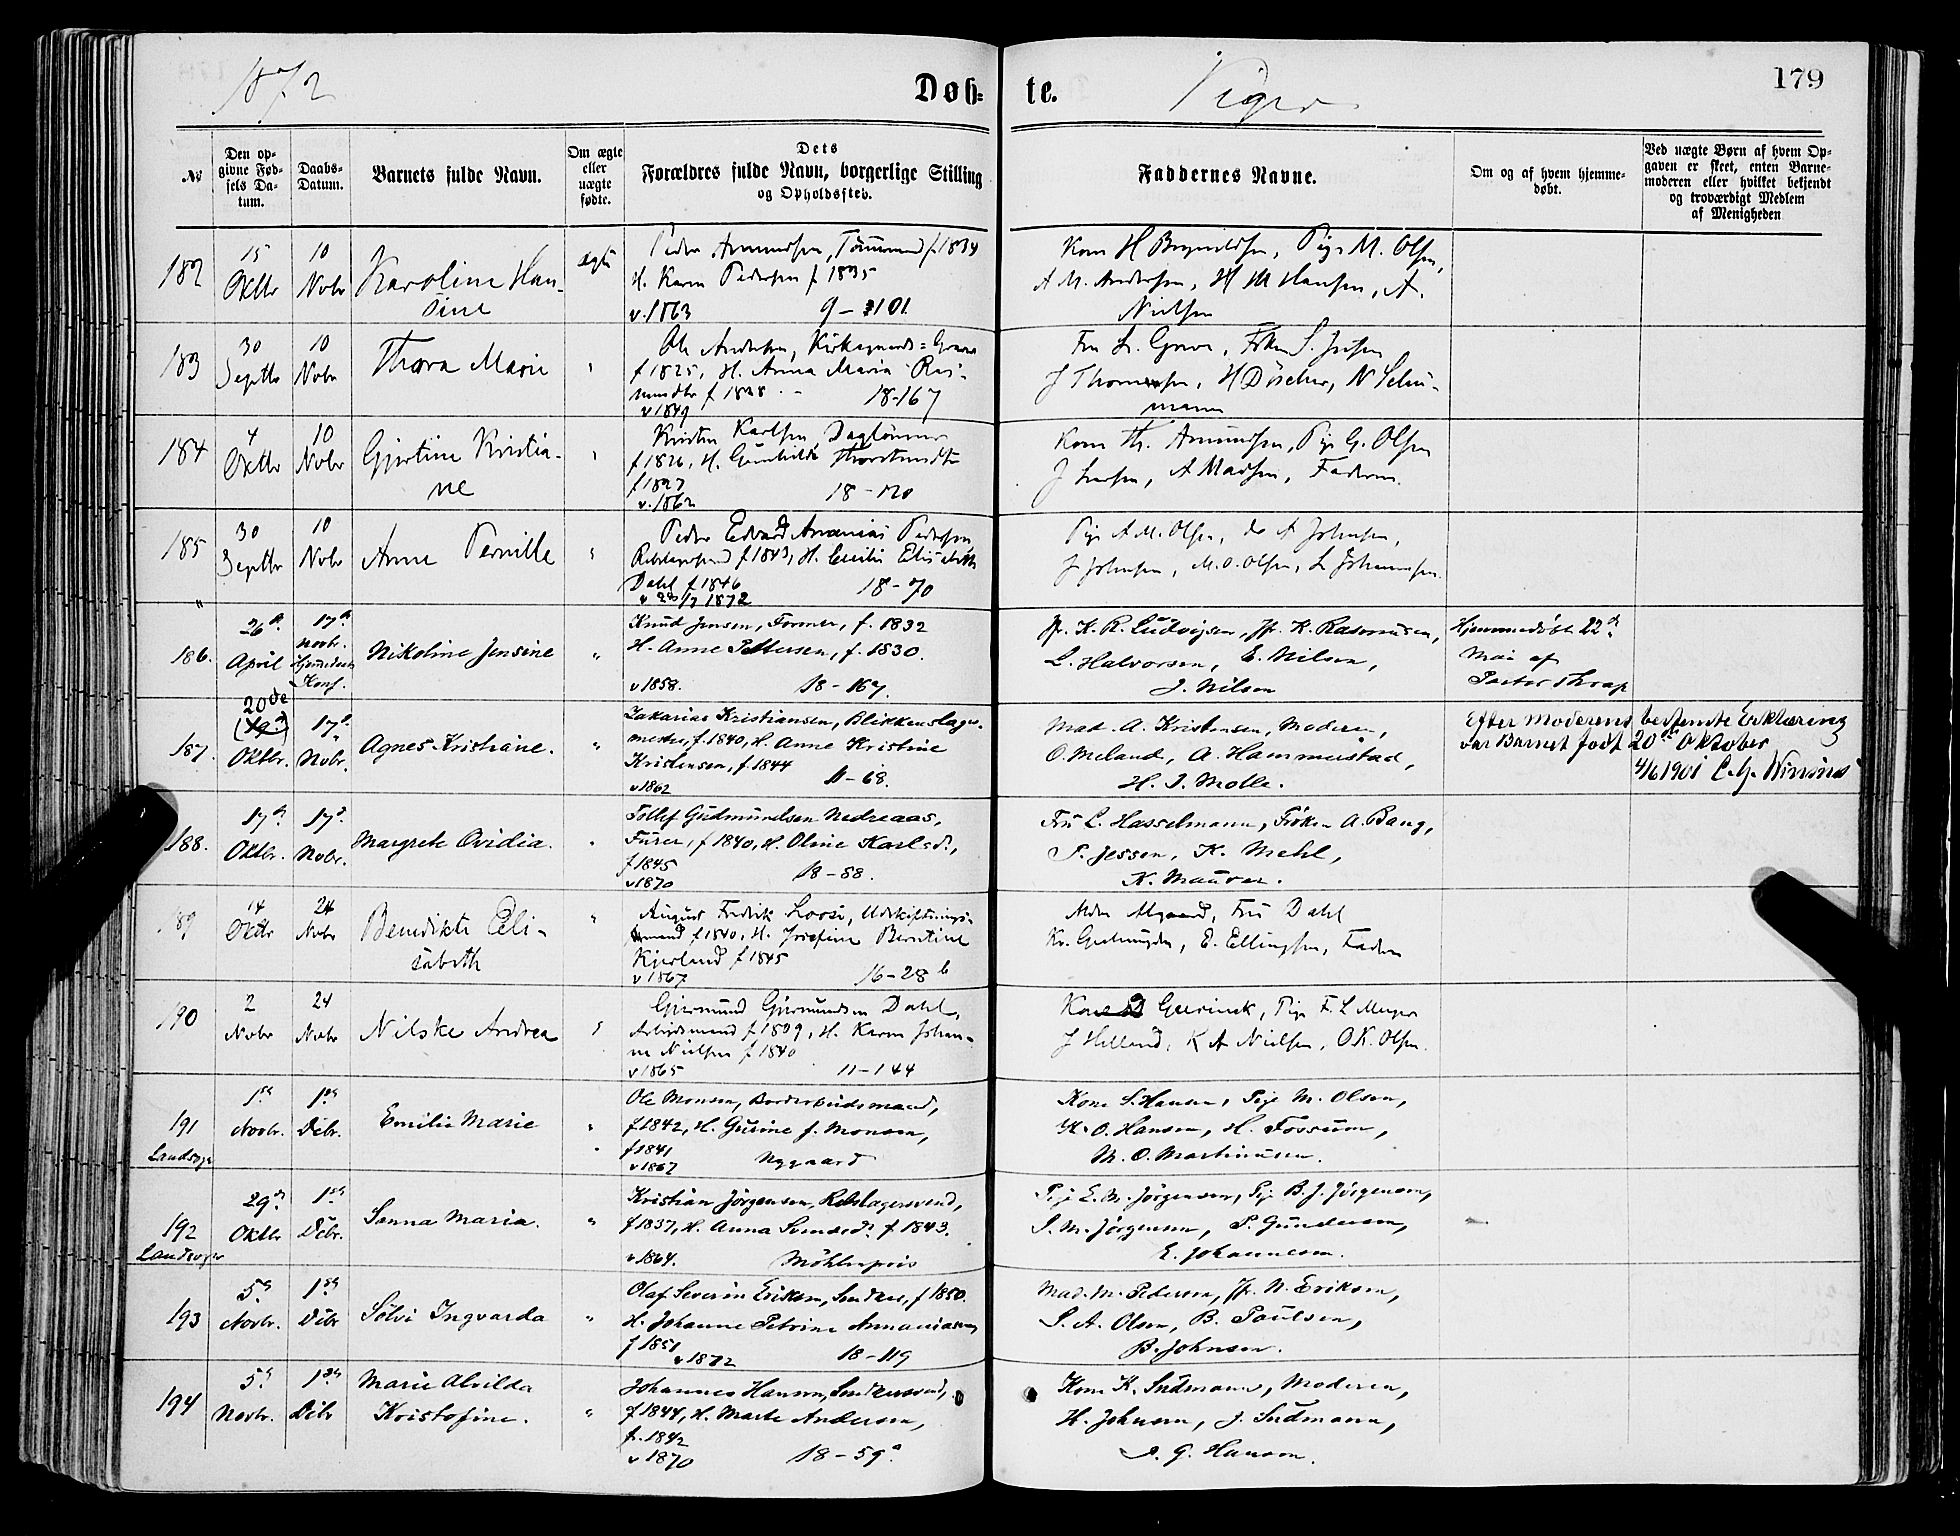 1872
Døb= te.
Piger
179
No
Den opgivne Fødsels Datum.
Daabs-Datum.
Barnets fulde Navn.
Om ægte eller uægte fødte.
Dets Forældres fulde Navn, borgerlige Stilling og Opholdssted.
Faddernes Navne.
Om og af hvem hjemmedøbt.
Ved uægte Børn af hvem Opgaven er skeet, enten Barnemoderen eller hvilket bekjendt og troværdigt Medlem af Menigheden
182
15 Oktbr
10 Nobr
Karoline Han-
sine
ægte
Peder Amundsen, Tømmermd f 1834
H. Karen Pedersen f 1835
v. 1863 9-101
Kone H Brynildsen, Pige M. Olsen,
A M. Andersen, H M Hansen, A.
Nielsen
183
30 Septbr
10 Nobr
Thora Marie
"
Ole Andersen, Kirkegaards-Graver
f 1825, H. Anna Maria Ras-
v 1849 18-167
J Thomsen, H Döscher, N Schu-
mann
184
4 Oktbr
10 Nobr
Gjertine Kristia-
ne
"
Kristen Karlsen, Daglønner
f 1826, H. Gunhilde
f 1827
v. 1862 18-120
Kone Th. Amundsen, Pige G. Olsen
J Larsen, A Madsen, Faderen.
185
30 Septbr
10 Nobr
Anne Pernille
"
Peder Edvard Ananias Pedersen
f 1843, H. Cecilie Elisabeth
Dahl f 1846 18-70
v 28/7 1872
Pige A M. Olsen, do A Johnsen,
J Johnsen, M. O. Olsen, L Johannesen.
"
186.
26d April
17d Novbr. Hjemmedaab Konf.
Nikoline Jensine
"
Knud Jensen, Former, f. 1832
H. Anne Pettersen, f. 1830.
v 1858. 18-167.
Jfr. K. R. Ludvigsen, Jfr. K. Rasmussen,
L. Halvorsen, E. Nilsen,
J. Nilsen
Hjemmedøbt 22d
Mai af
Pastor Thrap
187.
20de
(19d)
Oktbr.
17d Nobr.
Agnes Kristiane.
"
Zakarias Kristiansen, Blikkenslager-
mester, f. 1840, H. Anne Kristine
Kristensen, f. 1844
v 1862 11-68.
Mad. A. Kristensen, Moderen,
O. Meland, A. Hammerstad,
H. J. Molle.
Efter Moderens bestemte Erklæring
var Barnet født 20de Oktober
4/6 1901
188.
17d Oktbr.
17d Nobr.
Margrete Ovidia.
"
Tollef Gudmundsen Nedreaas,
Furer, f 1840, H. Oline Karlsd.,
f 1845
v 1870 18-88.
Fru L. Hasselmann, Frøken A. Bang,
P. Jessen, K. Mehl,
K. Maurer.
189
14 Oktbr
24 Nobr
Benedikte Eli-
sabeth
"
August Fredrik Loose, Udskiftnings-
mand f 1840, H. Josefine Berntine
Kjerland f 1845
v 1867 16-28 b
Fru Dahl
E. Ellingsen, Faderen
190
2 Nobr
24 Nobr
Nilske Andrea
"
Gjermund Gjermundsen Dahl,
Arbeidsmand f 1839, H. Karen Johan-
ne Nielsen f 1840
v 1865 11-144
Kone Geerinck, Pige F. L Meyer
J Helland, K A Nielsen, O K. Olsen.
191
Landsogn
1ste Novbr.
1ste Dcbr.
Emilie Marie
"
Ole Monsen, Bordarbeidsmand,
f 1842, H. Gurine f. Monsen,
f 1841
v 1867 Nygaard
Kone S. Hansen, Pige M. Olsen,
H. O. Hansen, H. Fossum,
M. O. Martinusen.
192
Landsogn
29d Oktbr
1ste Dcbr.
Sanna Maria.
"
Kristian Jørgensen, Rebslagersvend,
f 1837, H. Anna Svendsd. f. 1843.
v 1864. Møhlenpris
Pige L. M. Jørgensen, Pige B. J. Jørgensen,
S. M. Jørgensen, P. Gundersen,
E. Johannesen.
193
5te Novbr.
1ste Dcbr
Sølvi Ingvarda
"
Olaf Severin Eriksen, Snedker, f 1850.
H. Johanne Petrine Annaniasen,
f 1851
v 1872 18-119
Mad. M. Pedersen, Jfr. N. Eriksen,
S. A. Olsen, B. Poulsen,
B. Johnsen.
194
5te Novbr.
1ste Dcbr
Marie Alvilda
Kristofine.
"
Johannes Hansen, Snedkersvend,
f 1844, H. Marte Andersen,
f. 1842
v 1870 18-59a
Kone K. Sudmann, Moderen,
H. Johnsen, J. Sudmann,
A. G. Hansen.